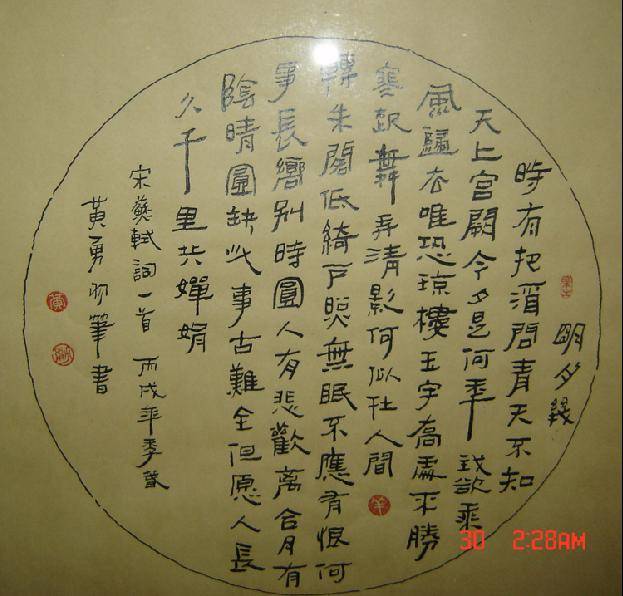 明月幾
時有把酒問青天不知
天上宫闕今夕是何年我欲乘
風歸去唯恐瓊樓玉宇高處不勝
寒起舞弄清影何似在人間
轉朱閣低綺戶照無眠不應有恨何
事長嚮别時圓人有悲歡離合月有
陰晴圓缺此事古難全但愿人長
久千里共嬋娟
宋蘇軾詞一首 丙戌年季
黄勇 筆書
30 2:28AM